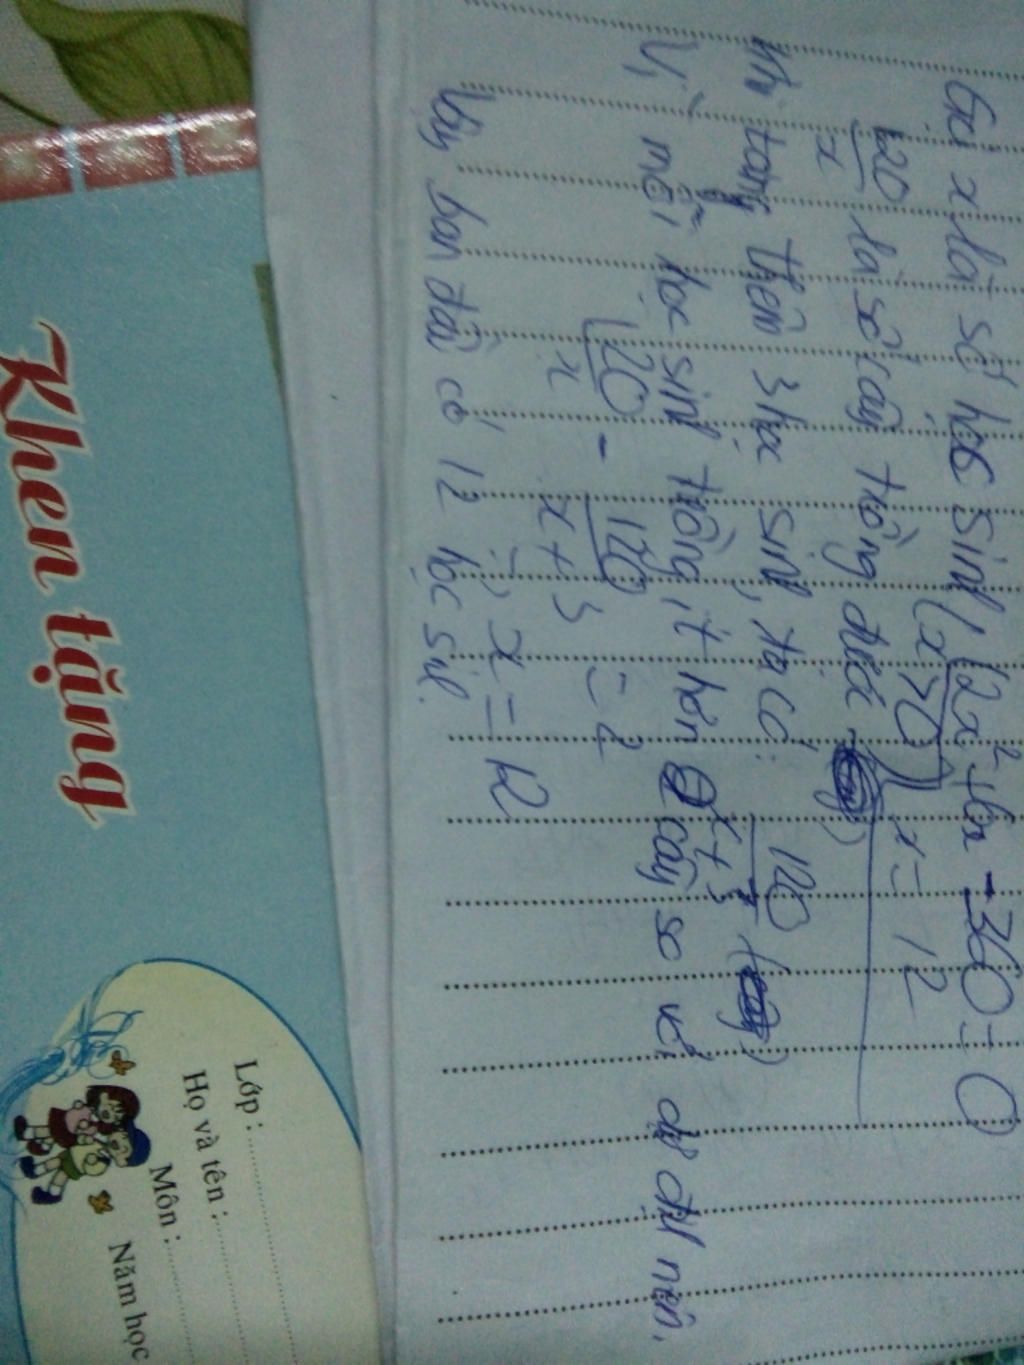 Gọi x là số học sinh (x > 0)
2x² + 6x - 360 = 0
x = 12
120/x là số cây trồng được
Khi tăng thêm 3 học sinh, ta có: 120/x+3
Vì mỗi học sinh trồng ít hơn 2 cây so với dự định nên.
120/x - 120/x+3 = 2
x = 12
Vậy ban đầu có 12 học sinh.
Khen tặng
Lớp :
Họ và tên :
Môn :
Năm học